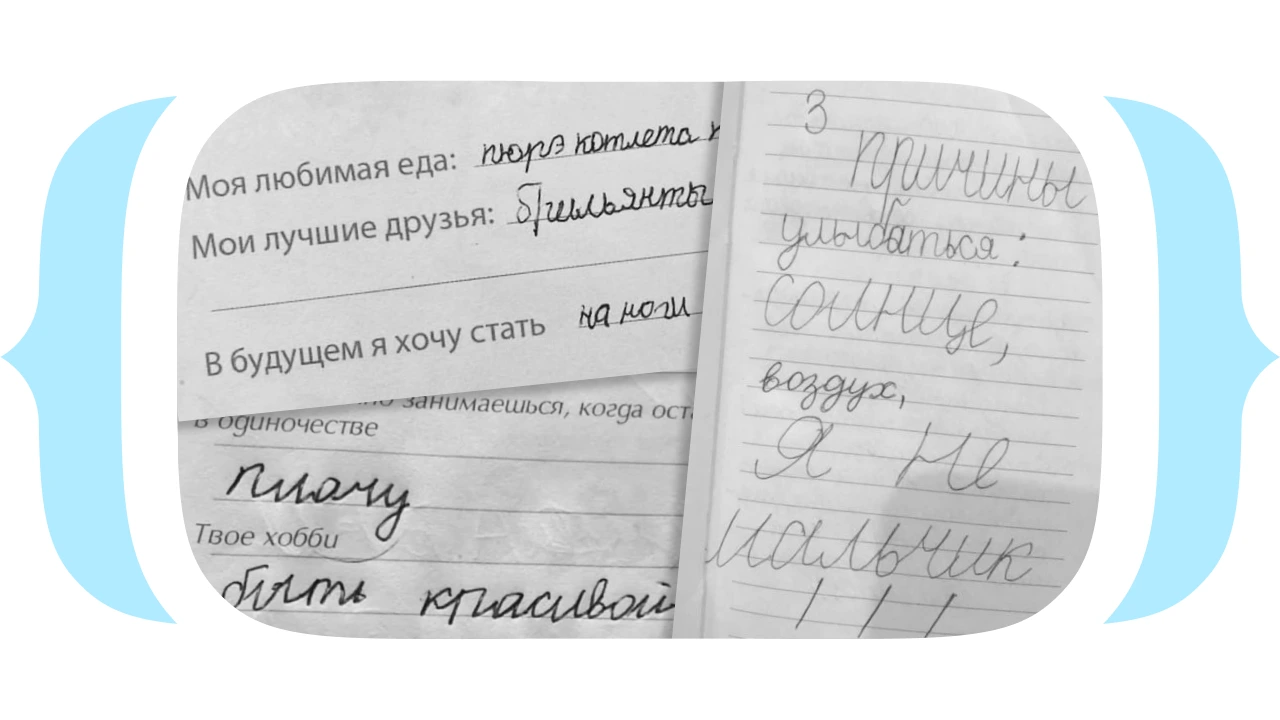 Моя любимая еда: пюрэ котлета
Мои лучшие друзья: брильянты
В будущем я хочу стать на ноги
занимаешься, когда
в одиночестве
плачу
Твое хобби
быть красивой
3
причины
улыбаться:
солнце,
воздух,
Я не
мальчик
! ! !